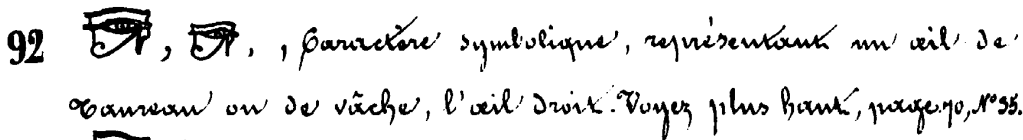 92 𓂀, 𓂀, , Caractère symbolique, représentant un œil de
taureau ou de vâche, l'œil droit. Voyez plus haut, page 70, N° 35.